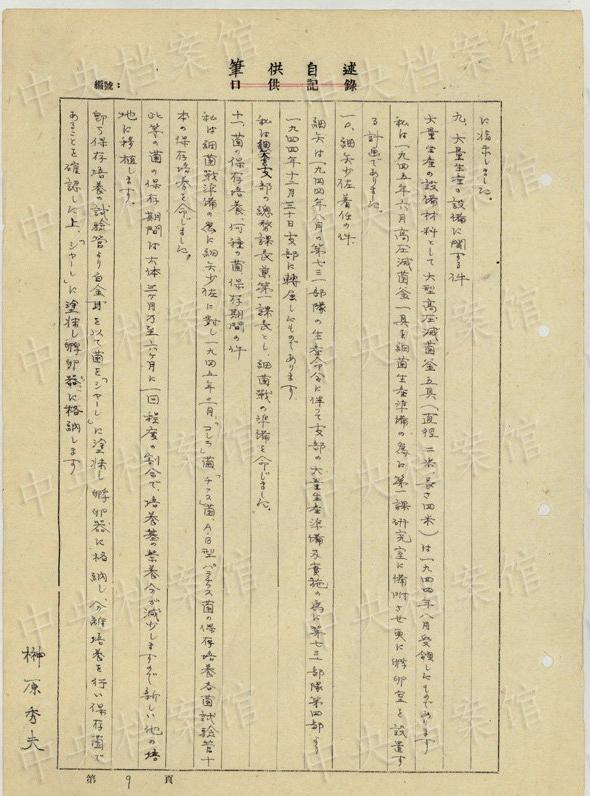 筆供自述
口供記錄
編號：
に指示しました。
九、大量生産の設備に関する件
大量生産の設備材料として大型高圧滅菌釜五具（直徑二米、長さ四米）は一九四四年八月受領したものであります
私は一九四五年六月高圧滅菌釜一具を細菌生産準備の為に第一課研究室に備附させ更に孵卵室を設置す
る計画でありました。
一〇、細矢少佐着任の件
細矢は一九四四年八月の第七三一部隊の生産命令に伴って支部の大量生産準備及実施の為に第七三一部隊第四部より
一九四四年十二月三十日支部に轉属したものであります
私は細矢を支部の總務課長兼第一課長とし、細菌戰の準備を命じました。
十一、菌保存培養、何種の菌保存期間の件
私は細菌戰準備の為に細矢少佐に對し一九四五年二月、「コレラ」菌「チフス」菌、A.B型パラチフス菌の保存培養各菌試験管十
本の保存培養を命じました。
此等の菌の保存期間は大体三ヶ月乃至六ヶ月に一回程度の割合で培養基の栄養分が減少しますので新しい他の培
地に移植します。
即ち保存培養の試験管より白金耳を以て菌を「シャーレ」に塗抹し孵卵器に格納し、分離培養を行い保存菌で
あることを確認した上、「シャーレ」に塗抹し孵卵器に格納します
榊原秀夫
第 9 頁
中央档案馆